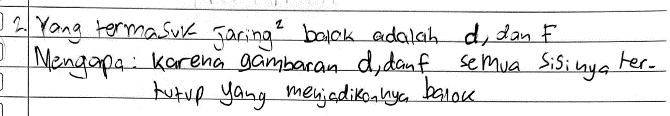 2. Yang termasuk jaring² balok adalah d, dan F
Mengapa : karena gambaran d, dan f semua sisinya ter-
tutup yang menjadikannya balok